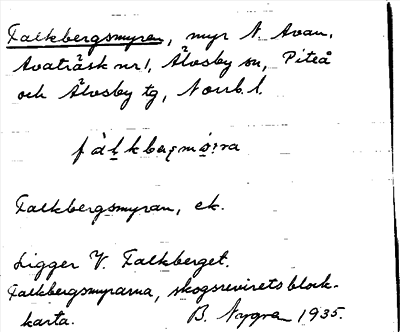 Falkbergsmyran, myr N. Avan,
Avaträsk nr 1, Älvsby sn, Piteå
och Älvsby tg, Norrb. l.
Falkbergsmyran, ek.
Ligger V. Falkberget.
Falkbergsmyrarna, skogsrevirets block-
karta. B. Nygren 1935.